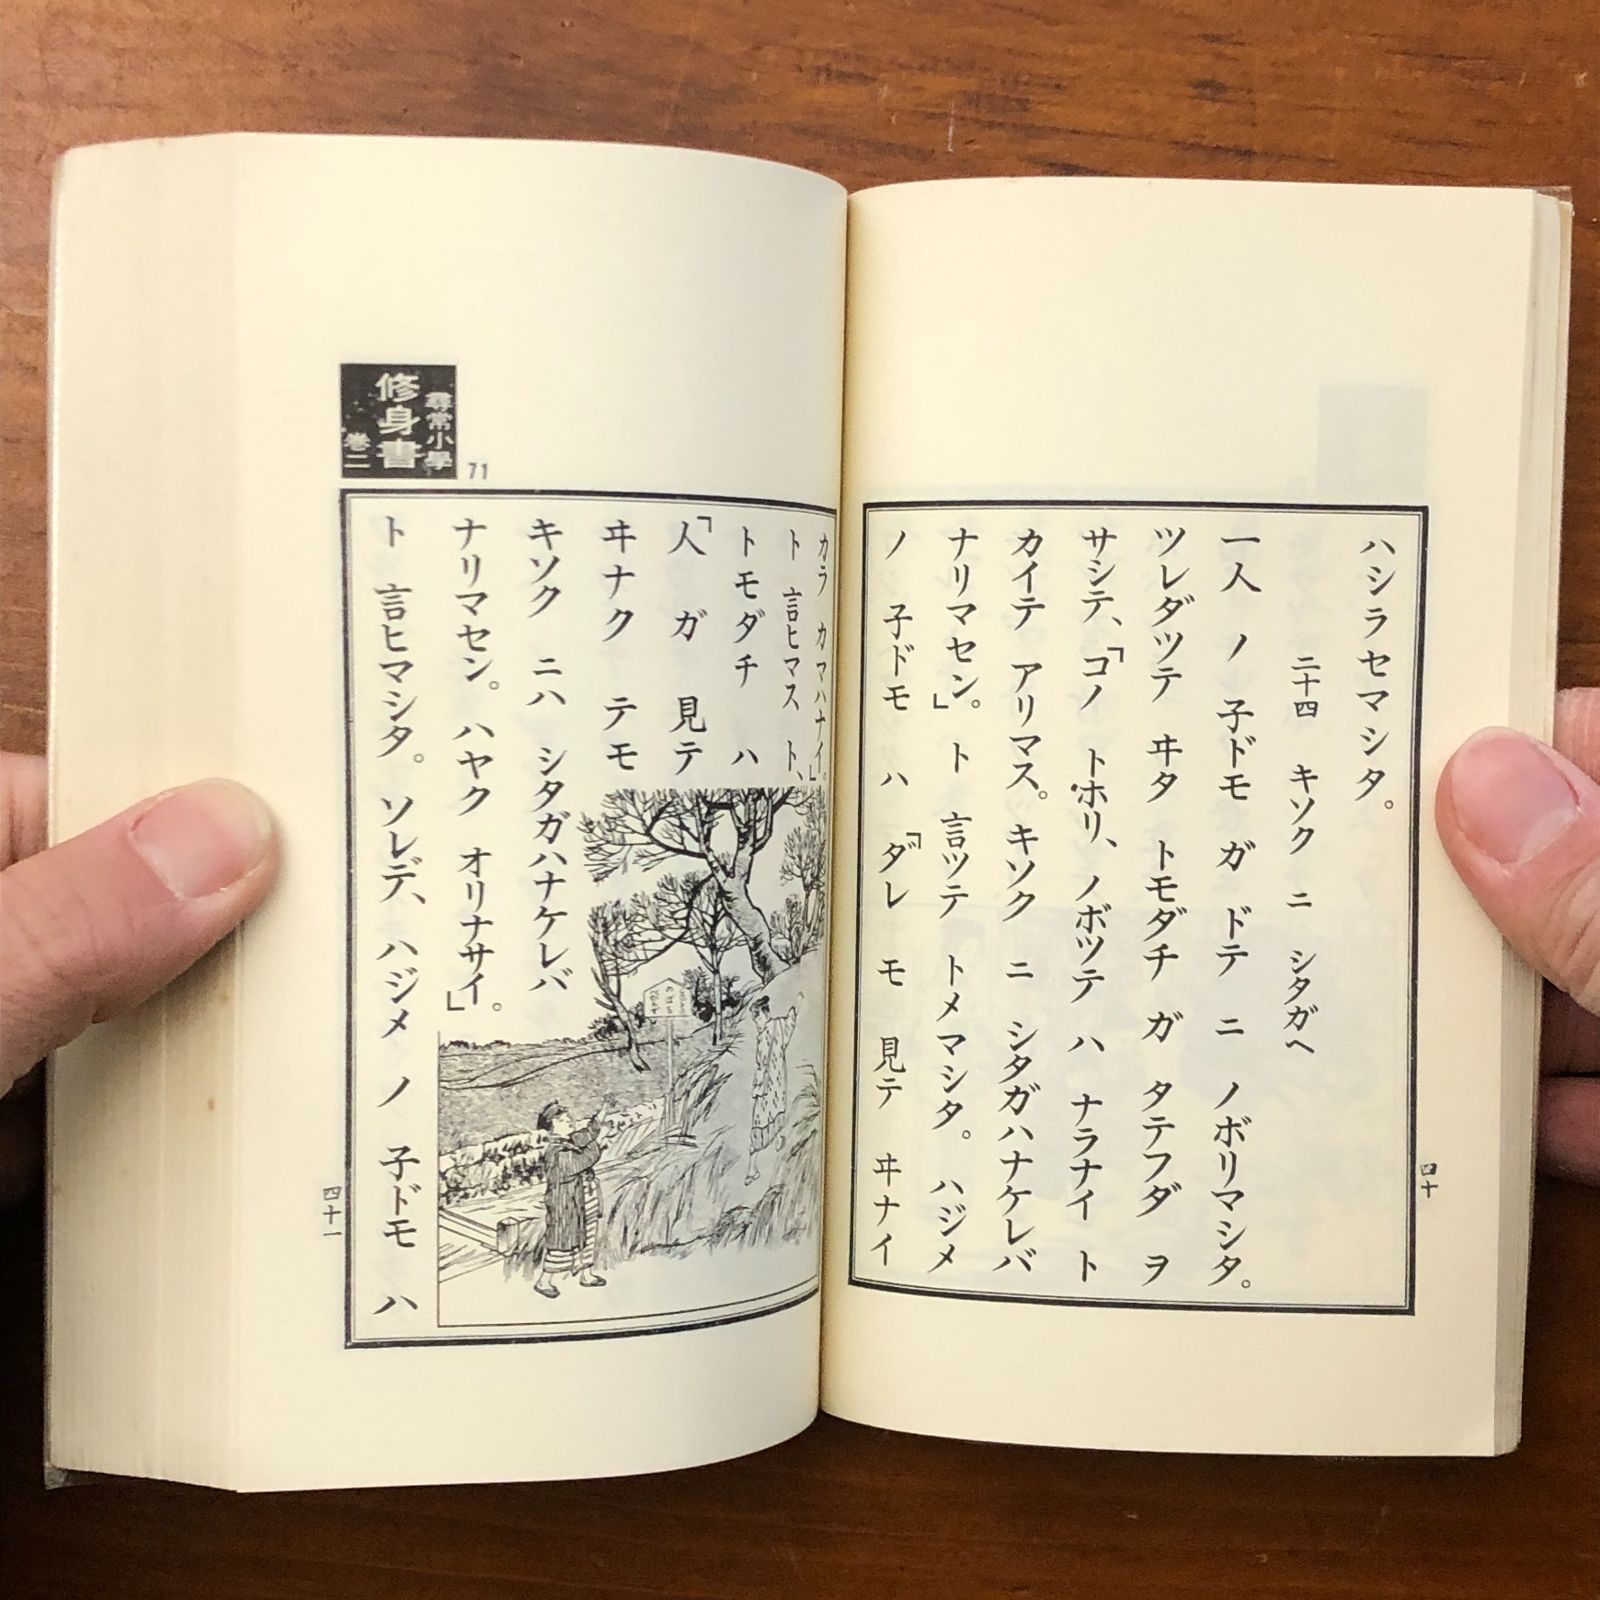 ハシラセマシタ。
二十四 キソク ニ シタガヘ
一人 ノ 子ドモ ガ ドテ ニ ノボリマシタ。
ツレダツテ ヰタ トモダチ ガ タテフダ ヲ
サシテ、「コノ トホリ、ノボツテ ハ ナラナイ ト
カイテ アリマス。キソク ニ シタガハナケレバ
ナリマセン。」ト 言ツテ トメマシタ。ハジメ
ノ 子ドモ ハ 「ダレ モ 見テ ヰナイ
四十
尋常小學
修身書
巻二
71
カラ カマハナイ。」
ト 言ヒマス ト、
トモダチ ハ
「人 ガ 見テ
ヰナク テモ
キソク ニハ シタガハナケレバ
ナリマセン。ハヤク オリナサイ。」
ト 言ヒマシタ。ソレデ、ハジメ ノ 子ドモ ハ
四十一